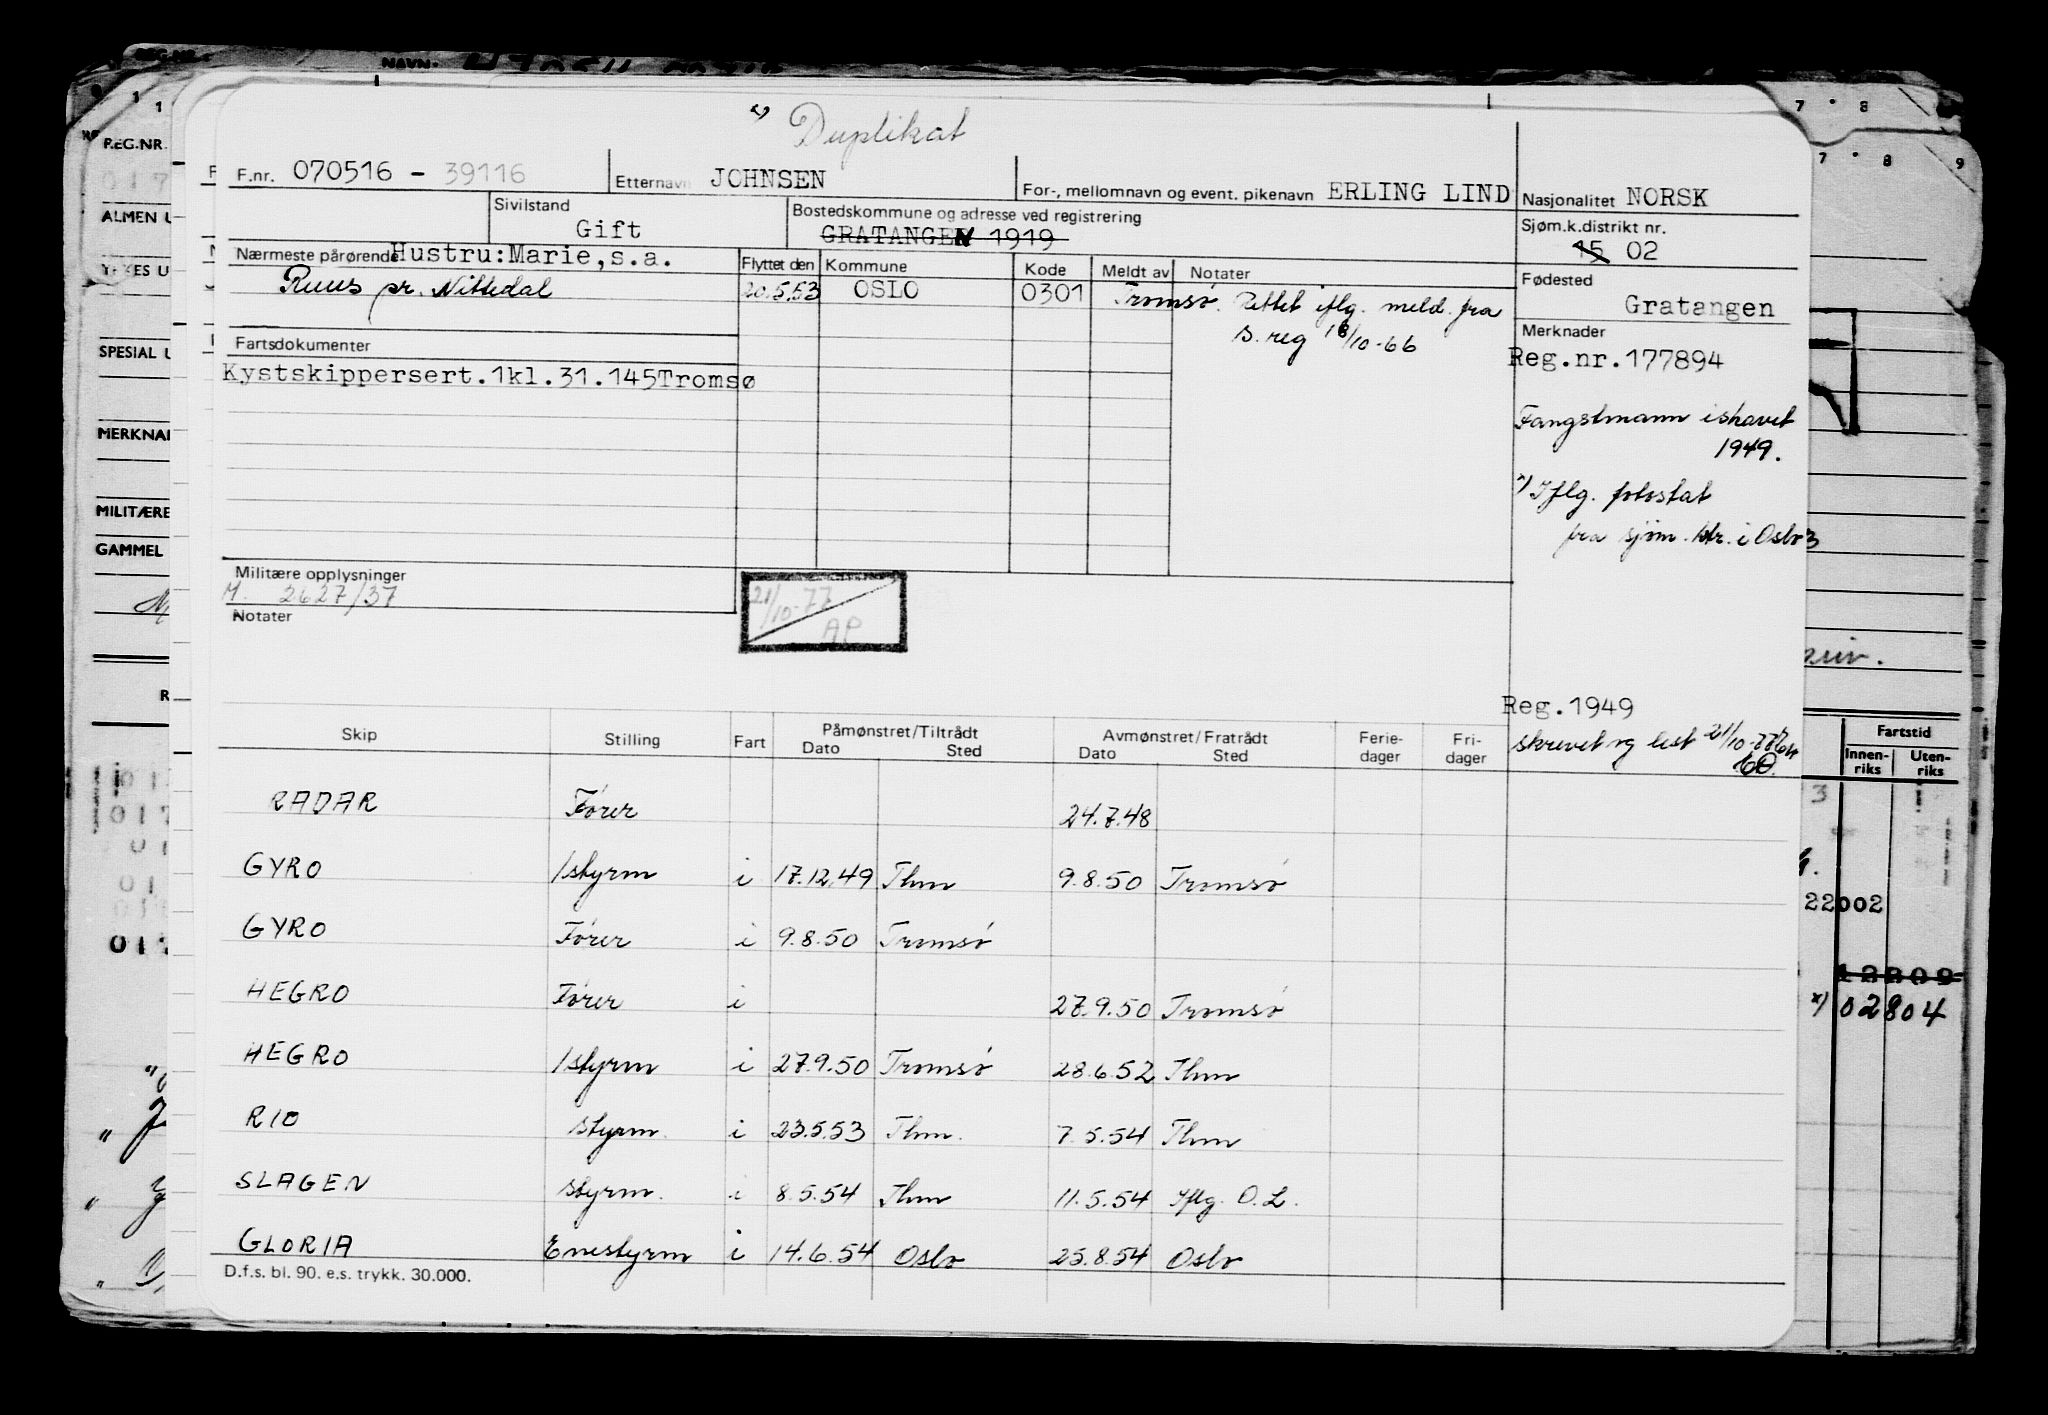 x) Duplikat
F.nr. 070516 - 39116 Etternavn JOHNSEN For-, mellomnavn og event. pikenavn ERLING LIND Nasjonalitet NORSK
Sivilstand Gift Bostedskommune og adresse ved registrering GRATANGEN 1919 Sjøm.k.distrikt nr. 15 02
Nærmeste pårørende Hustru:Marie,s.a. Flyttet den Kommune Kode Meldt av Notater Fødested Gratangen
Ruus pr. Nittedal 20.5.53 OSLO 0301 Tromsø. Rettet iflg. meld. fra
s. reg 18/10-66
Merknader
Reg.nr.177894
Fartsdokumenter
Kystskippersert.1kl.31.145Tromsø
Fangstmann ishavet
1949.
x) Iflg. fotostat
fra sjøm.ktr. i Oslo
Militære opplysninger
M. 2627/37
21/10-77
AP
Notater
Reg.1949
skrevet og lest 21/10-77
Skip Stilling Fart Påmønstret/Tiltrådt Dato Sted Avmønstret/Fratrådt Dato Sted Ferie-dager Fri-dager
RADAR Fører 24.7.48
GYRO 1styrm i 17.12.49 Thm 9.8.50 Tromsø
GYRO Fører i 9.8.50 Tromsø
HEGRO Fører i 27.9.50 Tromsø
HEGRO 1styrm i 27.9.50 Tromsø 28.6.52 Thm
RIO styrm. i 23.5.53 Thm. 7.5.54 Thm
SLAGEN styrm. i 8.5.54 Thm 11.5.54 Iflg. O.L.
GLORIA Enestyrm i 14.6.54 Oslo 25.8.54 Oslo
D.f.s. bl. 90. e.s. trykk. 30.000.
REG.NR.
NAVN:
REG.NR.
017
ALMEN U
YRKES U
SPESIAL U
MERKNA
MILITÆRE
GAMMEL
7 8
7 8 9
Fartstid
Innen-riks Uten-riks
22002
12809
x) 02804